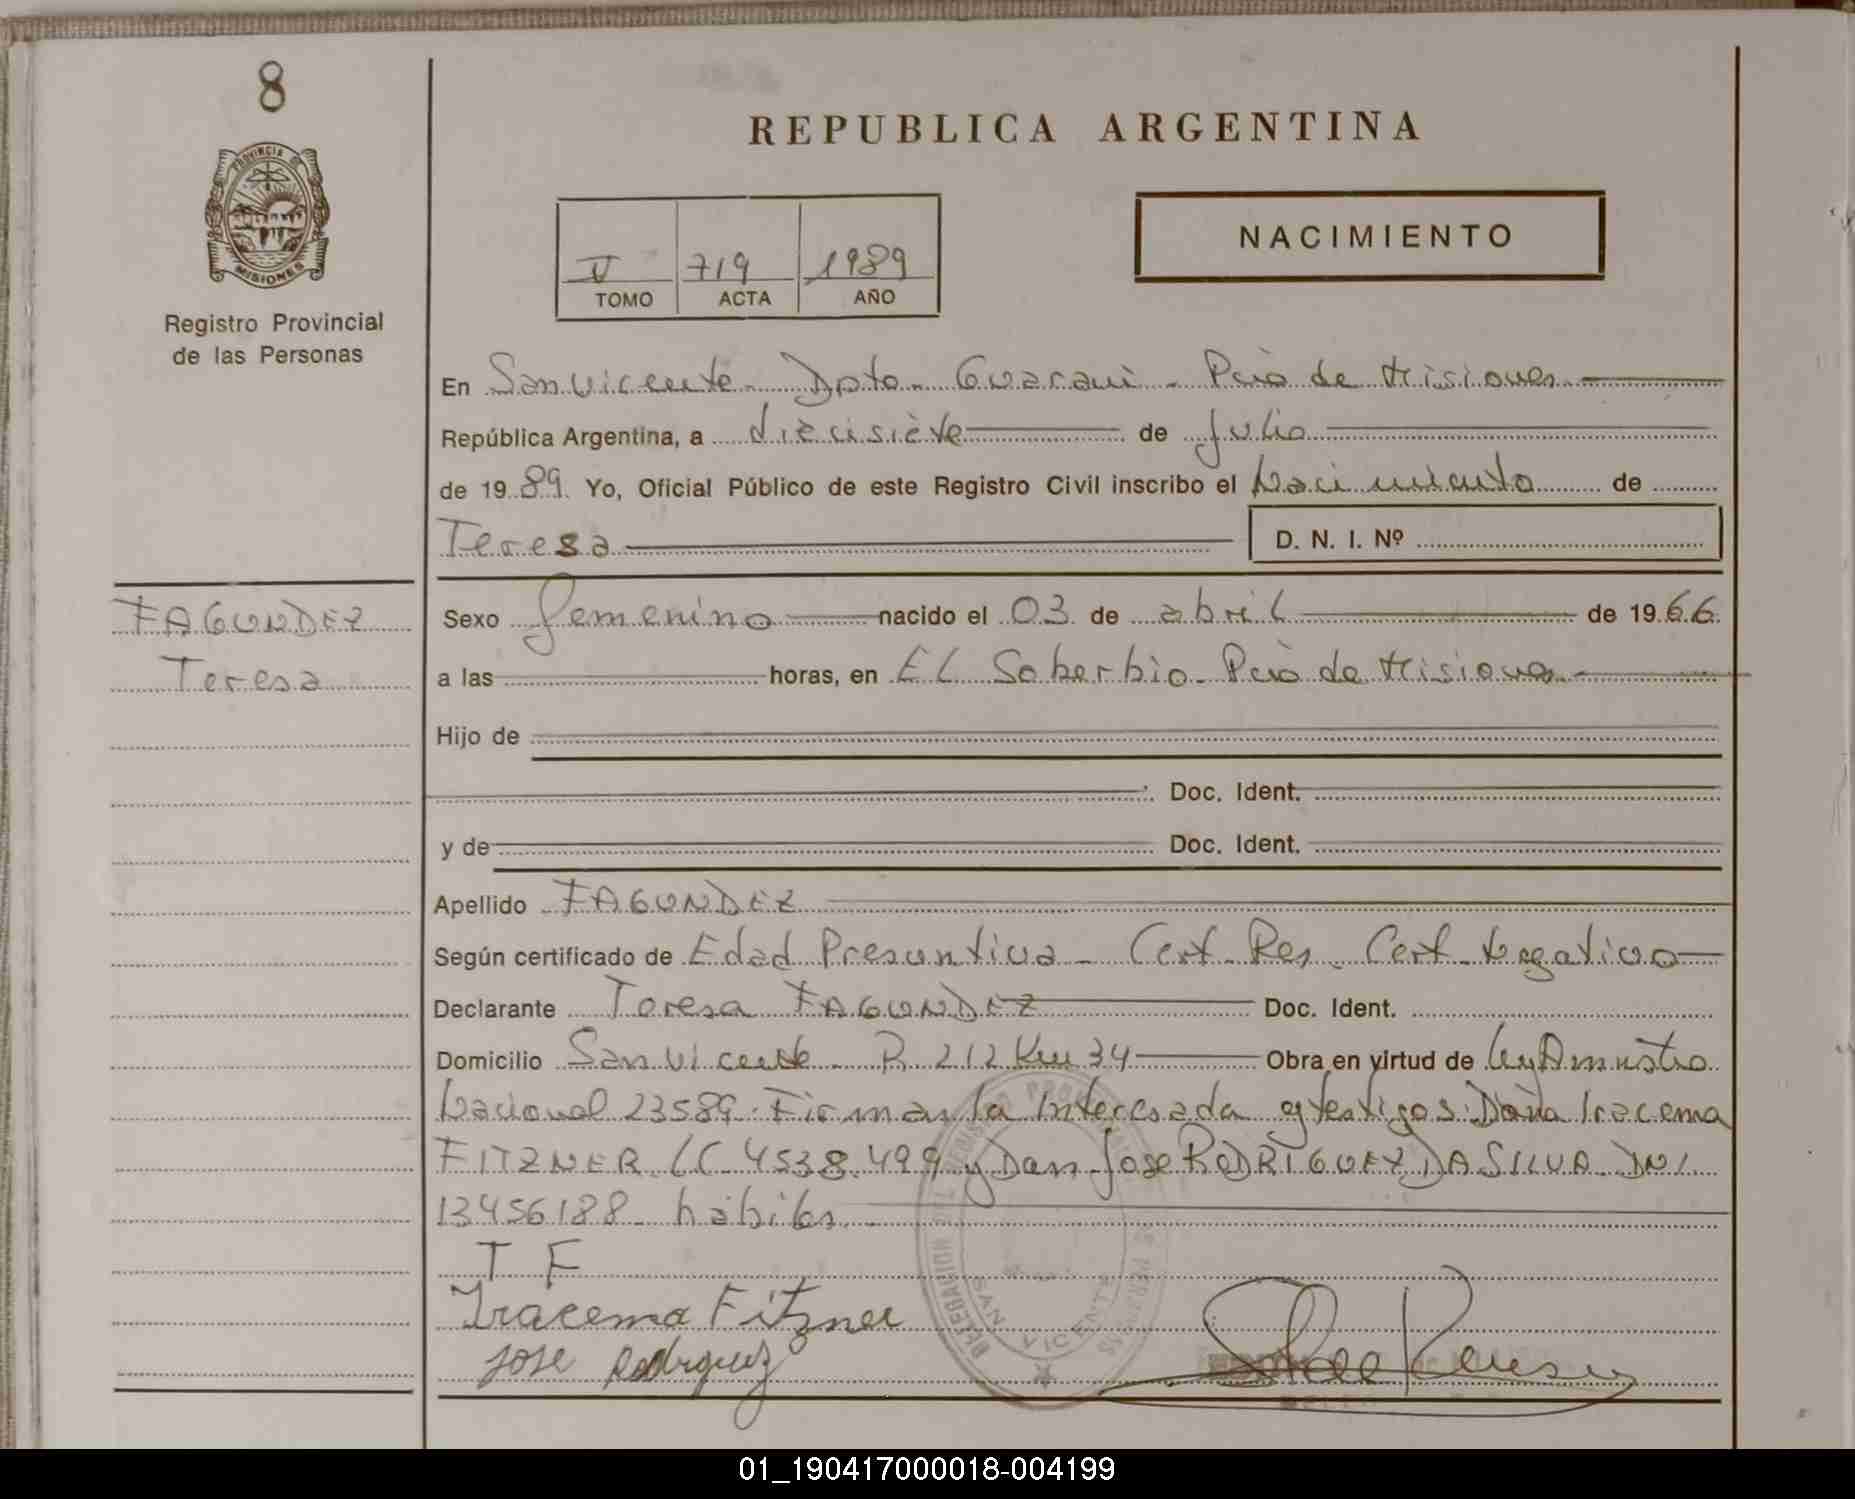 8
PROVINCIA DE
MISIONES
Registro Provincial
de las Personas
REPUBLICA ARGENTINA
V 719 1989
TOMO ACTA AÑO
NACIMIENTO
En San Vicente - Dpto - Guarani - Pcia de Misiones
República Argentina, a diecisiete de Julio
de 1989. Yo, Oficial Público de este Registro Civil inscribo el Nacimiento de
Teresa D. N. I. Nº
FAGUNDEZ
Teresa
Sexo femenino nacido el 03 de abril de 1966
a las horas, en EL Soberbio - Pcia de Misiones
Hijo de
Doc. Ident.
y de Doc. Ident.
Apellido FAGUNDEZ
Según certificado de Edad Presuntiva - Cert. Res. Cert. Negativo
Declarante Teresa FAGUNDEZ Doc. Ident.
Domicilio San Vicente - R. 212 Km 34 Obra en virtud de Ley Amnistia
Nacional 23589. Firman la interesada y testigos: Doña Iracema
FITZNER LC 4538.499 y Don Jose RODRIGUEZ DA SILVA DNI
13456188 habiles.
T F
Iracema Fitzner
Jose Rodriguez
DELEGACION DEL REGISTRO PROVINCIAL DE LAS PERSONAS
SAN VICENTE
01_190417000018-004199